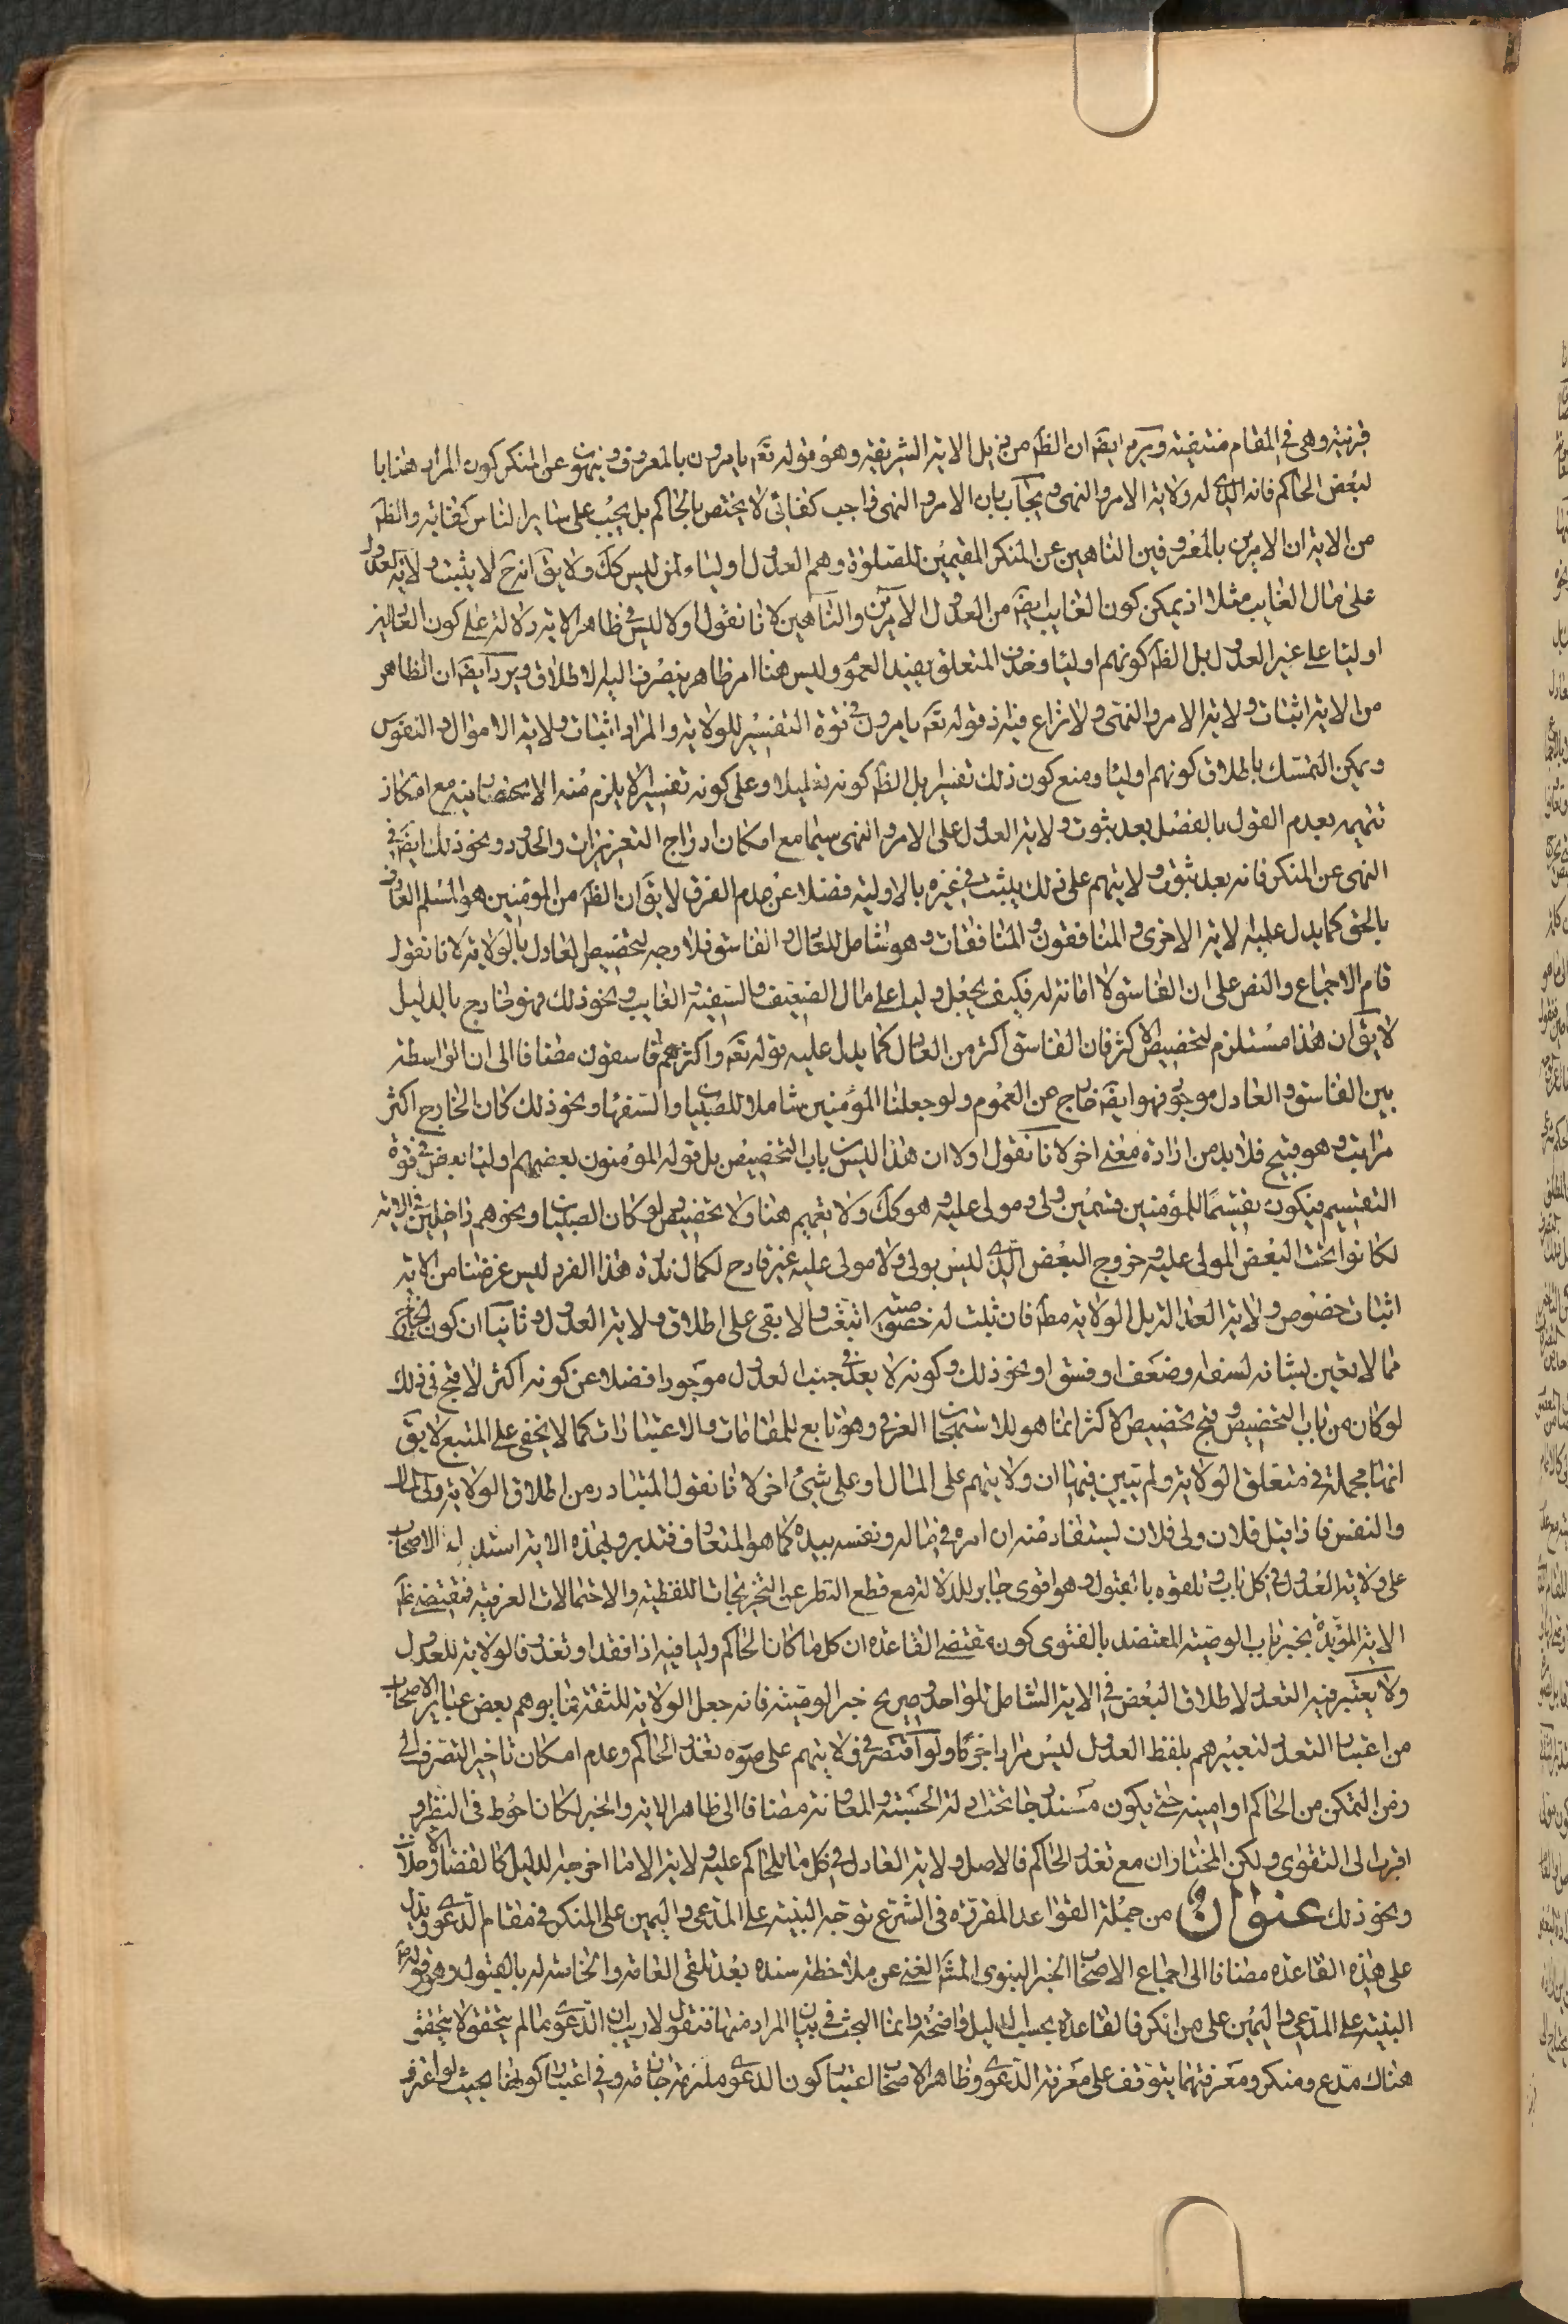 قرينة وهي في المقام منتفية ويرد ايضا ان الظ من ذيل الاية الشريفة وهو قوله تعه يامرون بالمعروف وينهون عن المنكر كون المراد هنا با
لبعض الحاكم فانه الذي له ولاية الامر والنهى ويجاب بان الامر والنهى واجب كفائي لا يختص بالحاكم بل يجب على ساير الناس كفاية والظ
من الاية ان الامرين بالمعروفين الناهين عن المنكر المقيمين للصلوة وهم العدول اولياء لمن ليس كك ولا يق انه ح لا يثبت ولاية العدول
على مال الغايب مثلا اذ يمكن كون الغايب ايضه من العدول الامرين والناهين لانا نقول اولا ليس في ظاهر الاية دلالة على كون العدول
اوليا على غير العدول بل الظ كونهم اوليا وحذف المتعلق يفيد العموم وليس هنا امر ظاهر ينصرف اليه الاطلاق ويرد ايضه ان الظاهر
من الاية اثبات ولاية الامر والنهى ولا نزاع فيه اذ قوله تعه يامرون في قوة التفسير للولاية والمراد اثبات ولاية الاموال والنفوس
ويمكن التمسك باطلاق كونهم اوليا ومنع كون ذلك تفسيرا بل الظ كونه تعليلا وعلى كونه تفسيرا لا يلزم منه الانحصار فيه مع امكان
تتميمه بعدم القول بالفصل بعد ثبوت ولاية العدول على الامر والنهى سيما مع امكان ادراج التعزيرات والحدود ونحو ذلك ايضه في
النهى عن المنكر فانه بعد ثبوت ولايتهم على ذلك يثبت في غيره بالاولية فضلا عن عدم الفرق لا يق ان الظ من المؤمنين هو المسلم العارف
بالحق كما يدل عليه الاية الاخرى والمنافقون والمنافقات وهو شامل للعادل والفاسق فلا وجه لتخصيص العادل بالولاية لانا نقول
قام الاجماع والنص على ان الفاسق لا امانة له فكيف يجعل وليا على مال الضعيف والسفيه والغايب ونحو ذلك فهو خارج بالدليل
لا يق ان هذا مستلزم لتخصيص الاكثر فان الفاسق اكثر من العادل كما يدل عليه قوله تعه واكثرهم فاسقون مضافا الى ان الواسطة
بين الفاسق والعادل موجود فهو ايضه خارج عن العموم ولو جعلنا المؤمنين شاملا للصبيان والسفهاء ونحو ذلك كان الخارج اكثر
مراتب وهو قبيح فلا بد من ارادة معنى اخر لانا نقول اولا ان هذا ليس من باب التخصيص بل قوله المؤمنون بعضهم اوليا بعض في قوة
التقسيم فيكون تقسيما للمؤمنين قسمين ولى ومولى عليه وهو كك ولا تعميم هنا ولا تخصيص لو كان الصبيان ونحوهم داخلين في الاية
لكانوا تحت البعض المولى عليه وخروج البعض الذي ليس بولى ولا مولى عليه غير قادح لكمال ندرة هذا الفرد ليس غرضنا من الاية
اثبات خصوص ولاية العدالة بل الولاية مطه فان ثبت له خصوصية اتبعت والا بقى على اطلاق ولاية العدول وثانيا ان كون الخارج
مما لا يعتنى بشانه لسفه وضعف او فسق او نحو ذلك وكونه لا يعد في جنب العدول موجودا فضلا عن كونه اكثر لا قبح في ذلك
لو كان من باب التخصيص وقبح تخصيص الاكثر انما هو للاستهجان العرفي وهو تابع للمقامات والاعتبارات كما لا يخفى على المتتبع لا يق
انها مجملة في متعلق الولاية ولم تبين فيها ان ولايتهم على المال او على شيئ اخر لانا نقول المتبادر من اطلاق الولاية ولى المال
والنفس فاذا قيل فلان ولى فلان يستفاد منه ان امره في ماله ونفسه بيده كما هو المتعارف فتدبر وبهذه الاية استدل الاصحاب
على ولاية العدول في كل باب وتلقوه بالقبول وهو اقوى جابر للدلالة مع قطع النظر عن التخريجات اللفظية والاحتمالات العرفية فمقتضى
الاية المؤيدة بخبر باب الوصية المعتضد بالفتوى كون مقتضى القاعدة ان كل ما كان الحاكم وليا فيه اذا فقد او تعذر فالولاية للعدول
ولا يعتبر فيه التعدد لاطلاق البعض في الاية الشامل للواحد وصريح خبر الوصية فانه جعل الولاية للثقة فما يوهم بعض عباير الاصحاب
من اعتبار التعدد لتعبيرهم بلفظ العدول ليس مرادا جزما ولو اقتصر في ولايتهم على صورة تعذر الحاكم وعدم امكان تاخير التصرف الى
زمن التمكن من الحاكم او امينه حتى يكون مندرجا تحت ادلة الحسبة والمعاونة مضافا الى ظاهر الاية والخبر لكان احوط في النظر و
اقرب الى التقوى ولكن المختار ان مع تعذر الحاكم فالاصل ولاية العادل في كل ما للحاكم عليه ولاية الا ما اخرجه الدليل كالقضاء والولايات
ونحو ذلك عنوان من جملة القواعد المقررة في الشرع توجه البينة على المدعى واليمين على المنكر في مقام الدعوى ويدل
على هذه القاعدة مضافا الى اجماع الاصحاب الخبر النبوى المشه الغنى عن ملاحظة سنده بعد تلقى العامة والخاصة له بالقبول وهو قوله
البينة على المدعى واليمين على من انكر فالقاعدة بحسب الدليل واضحة وانما البحث في بيان المراد منها فنقول لا ريب ان الدعوى ما لم يتحقق لا يتحقق
هناك مدع ومنكر ومعرفتهما يتوقف على معرفة الدعوى وظاهر الاصحاب اعتبار كون الدعوى ملزمة جازمة وفي اعتبار كونها بحيث لو اعترف